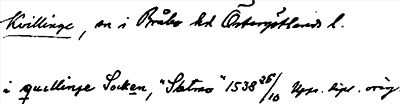 Kvillinge, sn i Bråbo hd Östergötlands l.
i quellinge Socken, "Sætræo" 1538 26/10 Upps. dipl. orig.